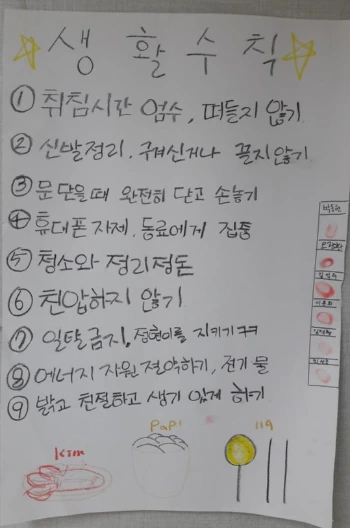 생 활 수 칙
① 취침시간 엄수, 떠들지 않기
② 신발정리. 구겨신거나 끌지않기
③ 문 닫을때 완전히 닫고 손놓기
④ 휴대폰 자제, 동료에게 집중
⑤ 청소와 정리정돈
⑥ 험압하지 않기
⑦ 일탈금지, 정현이를 지키기ㅋㅋ
⑧ 에너지 자원 절약하기, 전기 물
⑨ 밝고 친절하고 생기 있게 하기
Kim
PaPi
119